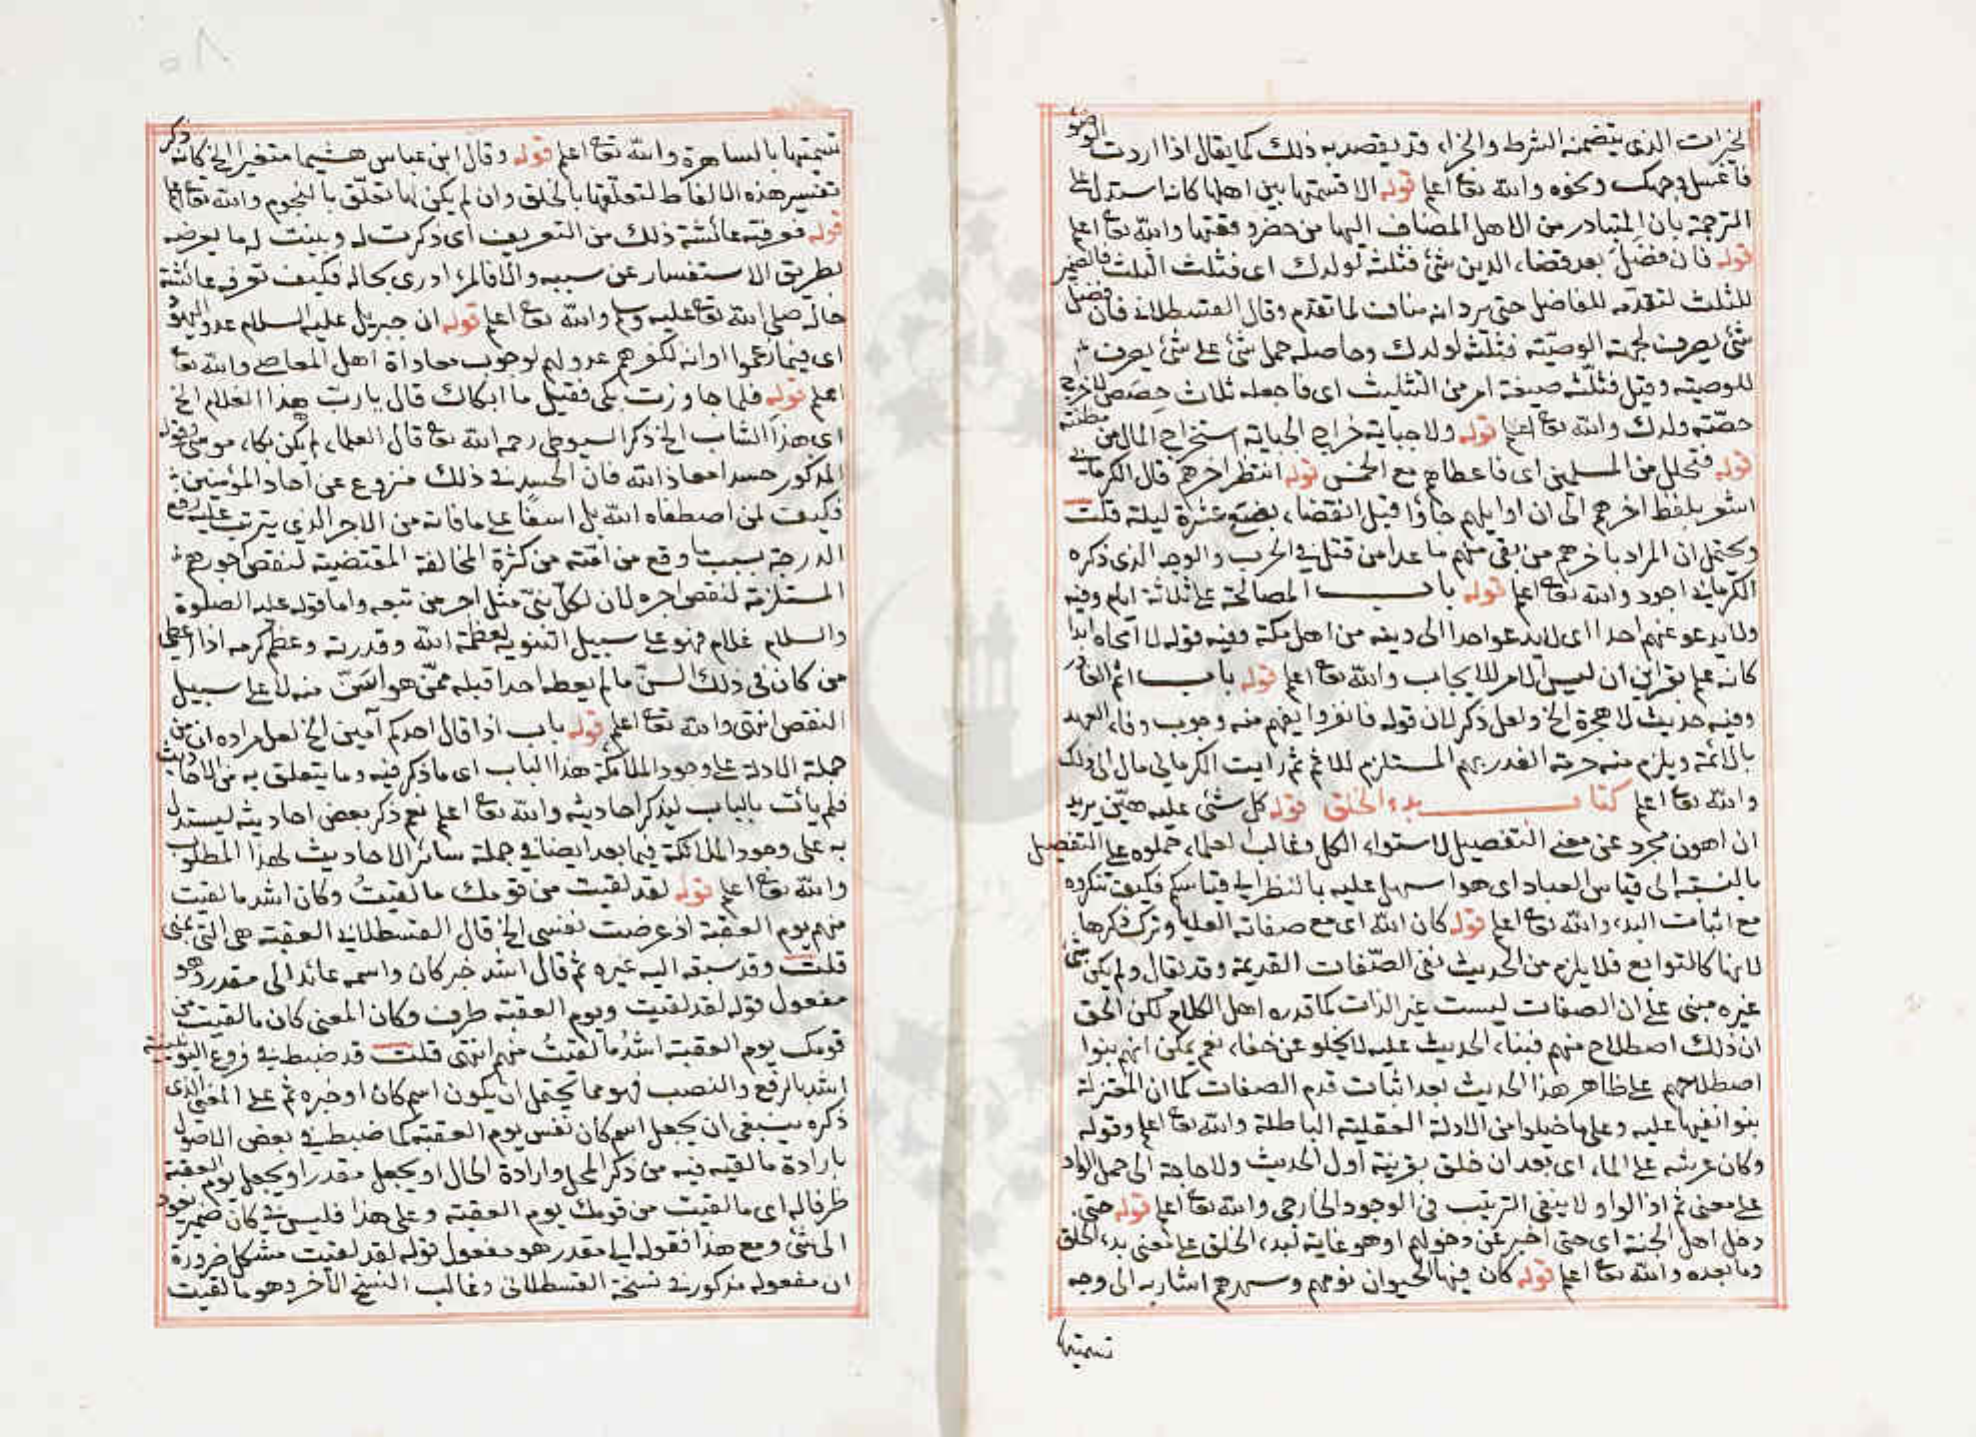 الخرات الذي يتضمنه الشرط والجزاء قد يقصد به ذلك كما يقال اذا اردت الوضوء
فاغسل وجهك ونحوه والله تعا اعلم قوله الا قسمتها بين اهلها كانه استدل على
الترجمة بان المتبادر من الاهل المضاف اليها من حضر وقعتها والله تعا اعلم
قوله فان فضل بعد قضاء الدين شئ فثلثه لولدك اي فثلث الثلث فالضمير
للثلث لتقدمه للفاضل حتى يرد انه مناف لما تقدم وقال القسطلاني فان فضل
شئ يصرف لجهة الوصية فثلثه لولدك وحاصله حمل شئ على شئ يصرف
للوصية وقيل فثلثه صيغة امر من التثليث اي فاجعله ثلاث حصص لاخراج
حصته ولدك والله تعا اعلم قوله ولا جباية خراج الجباية استخراج المال من مظنته
قوله فتحلل من المسلمين اي فاعطاهم مع الخمس قوله انتظر اخرهم قال الكرماني
اشعر بلفظ اخرهم الى ان اوايلهم جاؤا قبل انقضاء بضع عشرة ليلة قلت
ويحتمل ان المراد باخرهم من بقى منهم ما عدا من قتل في الحرب والوجه الذي ذكره
الكرماني اجود والله تعا اعلم قوله باب المصالحة على ثلاثة ايام وفيه
ولا يدعو منهم احدا اي لا يدعو احدا الى دينه من اهل مكة وفيه قوله لا امحاه ابدا
كانه علم بقراين ان ليس الامر للايجاب والله تعا اعلم قوله باب اثم الغادر
وفيه حديث لا هجرة الخ ولعل ذكره لان قوله فانفروا يفهم منه وجوب وفاء العهد
بالائمة ويلزم منه حرمة الغدر بهم المستلزم للاثم ثم رايت الكرماني مال الى ذلك
والله تعا اعلم كتاب بدء الخلق قوله كل شئ عليه هين يريد
ان اهون مجرد عن معنى التفضيل لاستواء الكل وغالب العلماء حملوه على التفضيل
بالنسبة الى قياس العباد اي هو اسهل عليه بالنظر الى قياسكم فكيف تنكروه
مع اثبات البدء والله تعا اعلم قوله كان الله اي مع صفاته العليا وترك ذكرها
لانها كالتوابع فلا يلزم من الحديث نفى الصفات القديمة وقد يقال ولم يكن شئ
غيره مبنى على ان الصفات ليست غير الذات كما قدره اهل الكلام لكن الحق
ان ذلك اصطلاح منهم فبناء الحديث عليه لا يخلو عن خفاء نعم يمكن انهم بنوا
اصطلاحهم على ظاهر هذا الحديث بعد اثبات قدم الصفات كما ان المعتزلة
بنوا نفيها عليه وعلى ما خيلوا من الادلة العقلية الباطلة والله تعا اعلم وقوله
وكان عرشه على الماء اي بعد ان خلق بقرينة اول الحديث ولا حاجة الى حمل الواو
على معنى ثم اذ الواو لا ينفى الترتيب في الوجود الخارجي والله تعا اعلم قوله حتى
دخل اهل الجنة اي حتى اخبر عن دخولهم او هو غاية لبدء الخلق على معنى بدء الخلق
وما بعده والله تعا اعلم قوله كان فيها الحيوان نومهم وسهرهم اشار به الى وجه
تسميتها
تسميتها بالساهرة والله تعا اعلم قوله وقال ابن عباس هشيما متغيرا الخ كانه ذكر
تفسير هذه الالفاظ لتعلقها بالخلق وان لم يكن لها تعلق بالنجوم والله تعا اعلم
قوله فعرفته عائشة ذلك من التعريف اي ذكرت له وبينت له ما يعرضه
بطريق الاستفسار عن سببه والا فالمرء ادرى بحاله فكيف تعرفه عائشة
حاله صلى الله تعا عليه وسلم والله تعا اعلم قوله ان جبريل عليه السلام عدو اليهود
اي فيما زعموا او انه لكفرهم عدو لهم لوجوب معاداة اهل المعاصي والله تعا
اعلم قوله فلما جاوزت بكى فقيل ما ابكاك قال يا رب هذا الغلام الخ
اي هذا الشاب الخ ذكر السيوطي رحمه الله تعا قال العلماء لم يكن بكاء موسى
المذكور حسدا معاذ الله فان الحسد في ذلك منزوع عن آحاد المؤمنين
فكيف لمن اصطفاه الله بل اسفا على ما فاته من الاجر الذي يترتب عليه رفع
الدرجة بسبب ما وقع من امته من كثرة المخالفة المقتضية لنقص اجورهم
المستلزمة لنقص اجره لان لكل نبي مثل اجر من تبعه واما قوله عليه الصلوة
والسلام غلام فهو على سبيل التنويه لعظمة الله وقدرته وعظم كرمه اذ اعطى
من كان في ذلك السن ما لم يعطه احدا قبله ممن هو اسن منه لا على سبيل
النقص انتهى والله تعا اعلم قوله باب اذا قال احدكم آمين الخ لعل مراده ان من
جملة الادلة على وجود الملائكة هذا الباب اي ما ذكر فيه وما يتعلق به من الاحاديث
فلم يأت بالباب ليذكر احاديثه والله تعا اعلم نعم ذكر بعض احاديثه ليستدل
به على وجود الملائكة فيما بعد ايضا في جملة سائر الاحاديث لهذا المطلوب
والله تعا اعلم قوله لقد لقيت من قومك ما لقيت وكان اشد ما لقيت
منهم يوم العقبة اذ عرضت نفسي الخ قال القسطلاني العقبة هي التي بمنى
قلت وقد سبقه اليه غيره ثم قال اشد خبر كان واسمه عائد الى مقدر وهو
مفعول قوله لقد لقيت ويوم العقبة ظرف وكان المعنى كان ما لقيت من
قومك يوم العقبة اشد ما لقيت منهم انتهى قلت قد ضبط في فروع اليونينية
اشد بالرفع والنصب فهو مما يحتمل ان يكون اسم كان او خبره ثم على المعنى الذي
ذكره ينبغي ان يجعل اسم كان نفس يوم العقبة كما ضبط في بعض الاصول
بارادة ما لقيه فيه من ذكر المحل وارادة الحال او يجعل مقدرا ويجعل يوم العقبة
ظرفا له اي ما لقيت من قومك يوم العقبة وعلى هذا فليس في كان ضمير يعود
الى شئ ومع هذا فقوله الى مقدر هو مفعول قوله لقد لقيت مشكل ضرورة
ان مفعوله مذكور في نسخة القسطلاني وغالب النسخ الاخر وهو ما لقيت